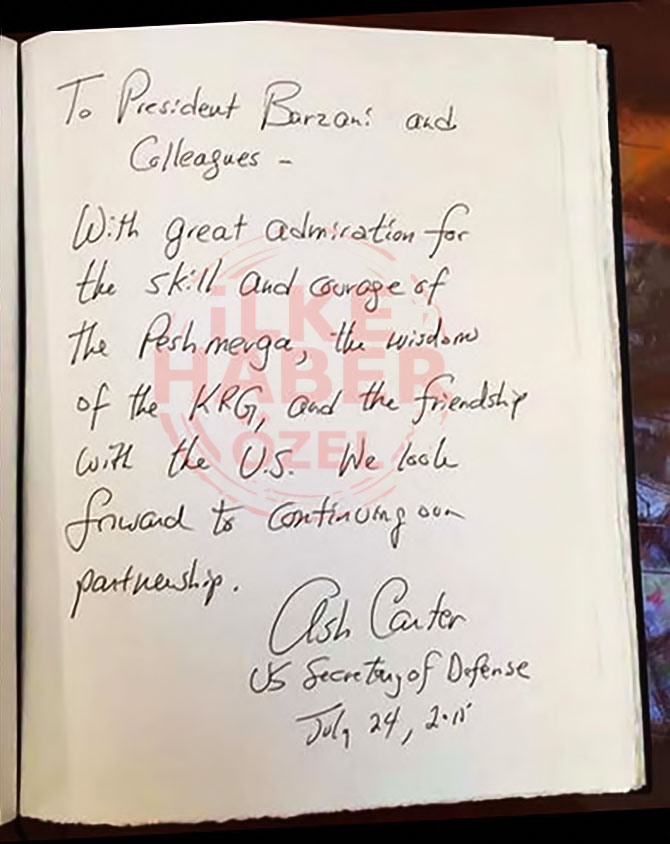 To President Barzani and
Colleagues -
With great admiration for
the skill and courage of
the Peshmerga, the wisdom
of the KRG, and the friendship
with the U.S. We look
forward to continuing our
partnership.
Ash Carter
US Secretary of Defense
July 24, 2015
İLKE
HABER
ÖZEL